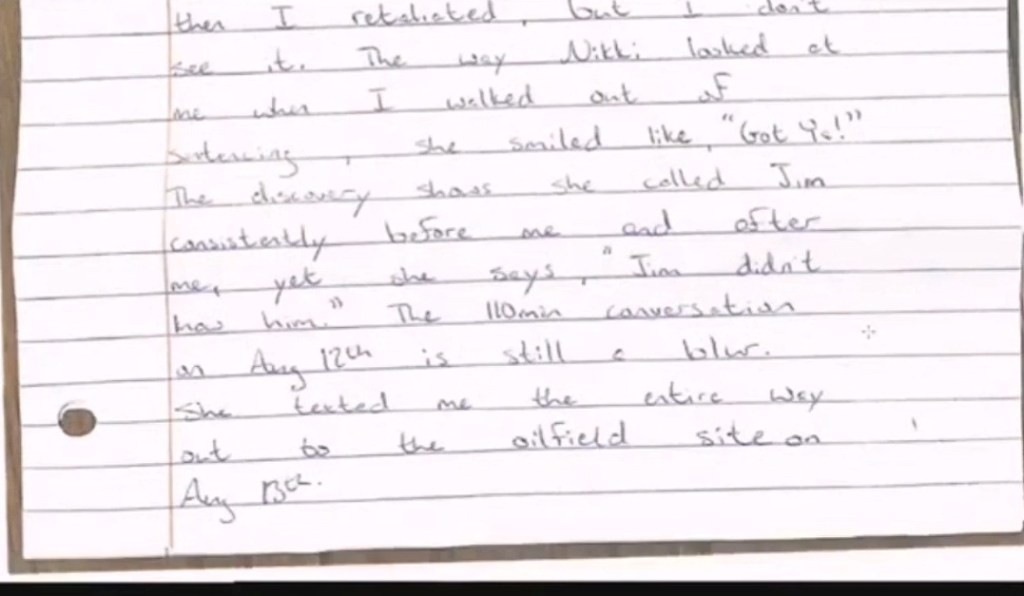 then I retaliated, but I don't
see it. The way Nikki looked at
me when I walked out of
sentencing, she smiled like, "Got Ya!"
The discovery shows she called Jim
consistently before me and after
me, yet she says, "Jim didn't
has him." The 110min conversation
on Aug 12th is still a blur.
She texted me the entire way
out to the oilfield site on
Aug 13th.